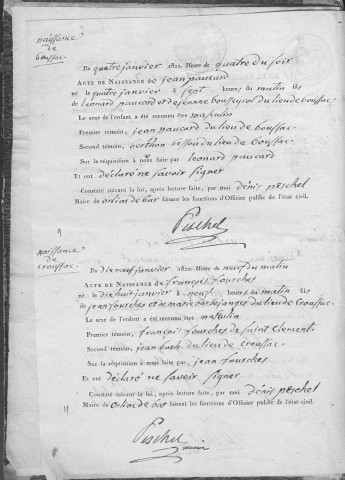 naissance
de
boussac.
Du quatre janvier 1822. Heure de quatre du soir
ACTE DE NAISSANCE de jean paucard
né le quatre janvier à sept heures du matin fils
de léonard paucard et de jeanne du lieu de boussac.
Le sexe de l'enfant a été reconnu être masculin
Premier témoin, jean paucard du lieu de boussac.
Second témoin, berthon du lieu de Croussac.
Sur la réquisition à nous faite par léonard paucard
Et ont déclaré ne savoir signer
Constaté suivant la loi, après lecture faite, par moi dénis peschel
Maire de orliac de bar faisant les fonctions d'Officier public de l'état civil.
Peschel
naissance
de
Croussac.
Du dix neuf janvier 1822. Heure de neuf du matin
ACTE DE NAISSANCE de françois fourches
né le dix huit janvier à neuf heures du matin fils
de jean fourches et de marie du lieu de Croussac.
Le sexe de l'enfant a été reconnu être masculin
Premier témoin, françois fourches de saint Clement
Second témoin, jean du lieu de Croussac.
Sur la réquisition à nous faite par jean fourches
Et ont déclaré ne savoir signer
Constaté suivant la loi, après lecture faite, par moi dénis peschel
Maire de orliac de bar faisant les fonctions d'Officier public de l'état civil.
Peschel